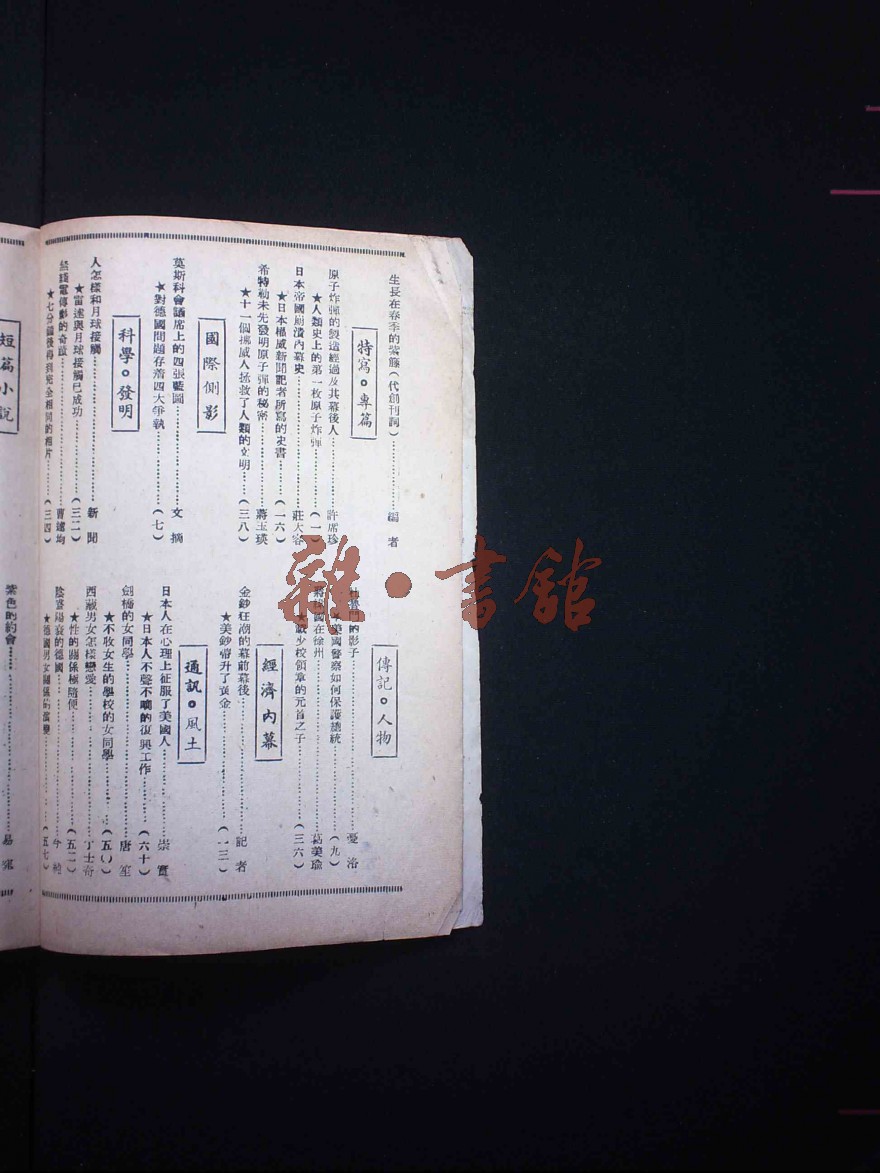 生長在春季的紫籐（代創刊詞）…………編者
特寫。專篇
原子炸彈的製造經過及其幕後人…………許席珍
★人類史上的第一枚原子炸彈…………（一）
日本帝國崩潰內幕史…………莊大容
★日本權威新聞記者所寫的史書…………（一六）
希特勒未先發明原子彈的秘密…………蔣玉瑛
★十一個挪威人拯救了人類的文明……（三八）
國際側影
莫斯科會議席上的四張藍圖…………文摘
★對德國問題存着四大爭執…………（七）
科學。發明
人怎樣和月球接觸…………新聞
★雷達與月球接觸已成功…………（三二）
無綫電傳影的奇蹟…………曹遂均
★七分鐘後得到完全相同的相片…………（三四）
短篇小說
傳記。人物
杜魯門的影子…………憂洛
★美國警察如何保護總統…………（九）
蔣緯國在徐州…………葛美瑜
★戴少校領章的元首之子…………（三六）
經濟內幕
金鈔狂潮的幕前幕後…………記者
★美鈔帶升了黃金…………（一三）
通訊。風土
日本人在心理上征服了美國人…………崇實
★日本人不聲不响的復興工作…………（六十）
劍橋的女同學…………唐笙
★不收女生的學校的女同學…………（五〇）
西藏男女怎樣戀愛…………丁士奇
★性的關係極隨便…………（五二）
陰盛陽衰的德國…………
★德國男女關係的演變…………（五七）
紫色的約會…………易
雜·書館